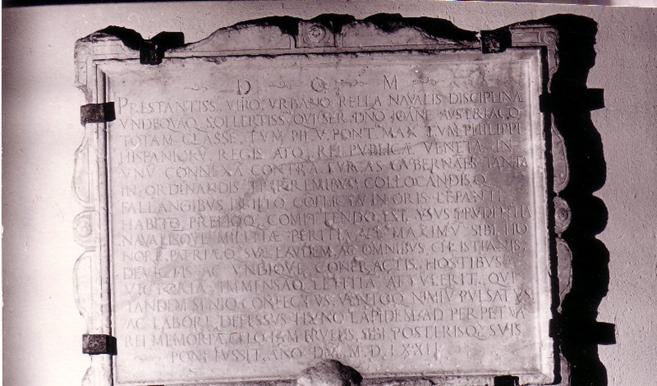 D O M
PRESTANTISS VIRO VRBANO RELLA NAVALIS DISCIPLINÆ
VNDEQVAQ SOLLERTISS QVI SER DNO IOANE AVSTRIACO
TOTAM CLASSE TVM PII V PONT MAX TVM PHILIPPI
HISPANIORV REGIS ATQ REI PVBLICÆ VENETÆ IN
VNV CONNEXA CONTRA TVRCAS GVBERNATE
IN ORDINANDIS TRIREMIBVS COLLOCANDISQ
FALLANGIBVS BELLO CONFLICTV IN ORIS LEPANTI
HABITO COMITTENDO VSVS PRVDENTIA
NAVALISQVE MILITIÆ PERITIA MAXIMV SIBI HO
NORE PATRIÆQ SVÆ LAVDEM AC OMNIBVS CHRISTIANIS
DEVICTIS AC VNDIQVE CONFRACTIS HOSTIBVS
VICTORIA IMMENSAQ LETITIA ATTVLERIT QVI
TANDEM SENIO CONFECTVS VENTOQ NIMIV PULSATVS
AC LABORE DEFESSVS HVNC LAPIDEM AD PERPETVA
REI MEMORIA SIBI POSTERISQ SVIS
PONI IVSSIT ANO DNI M D LXXII